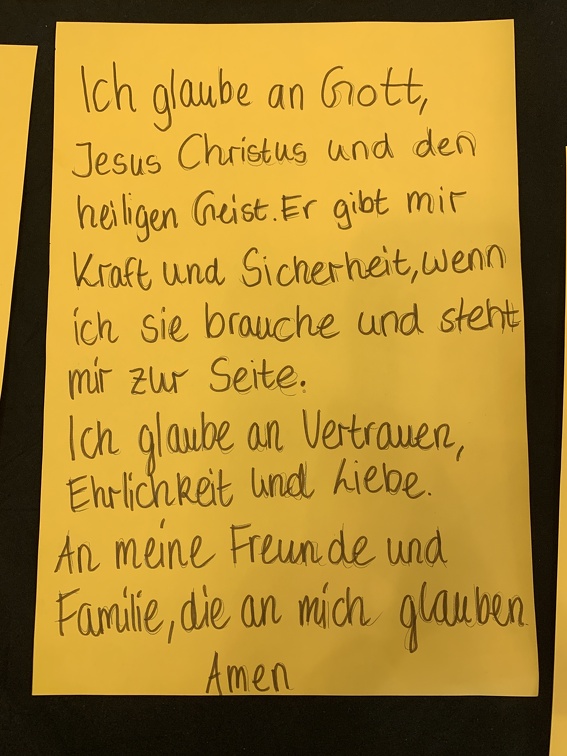 Ich glaube an Gott,
Jesus Christus und den
heiligen Geist. Er gibt mir
Kraft und Sicherheit, wenn
ich sie brauche und steht
mir zur Seite.
Ich glaube an Vertrauen,
Ehrlichkeit und Liebe.
An meine Freunde und
Familie, die an mich glauben
Amen